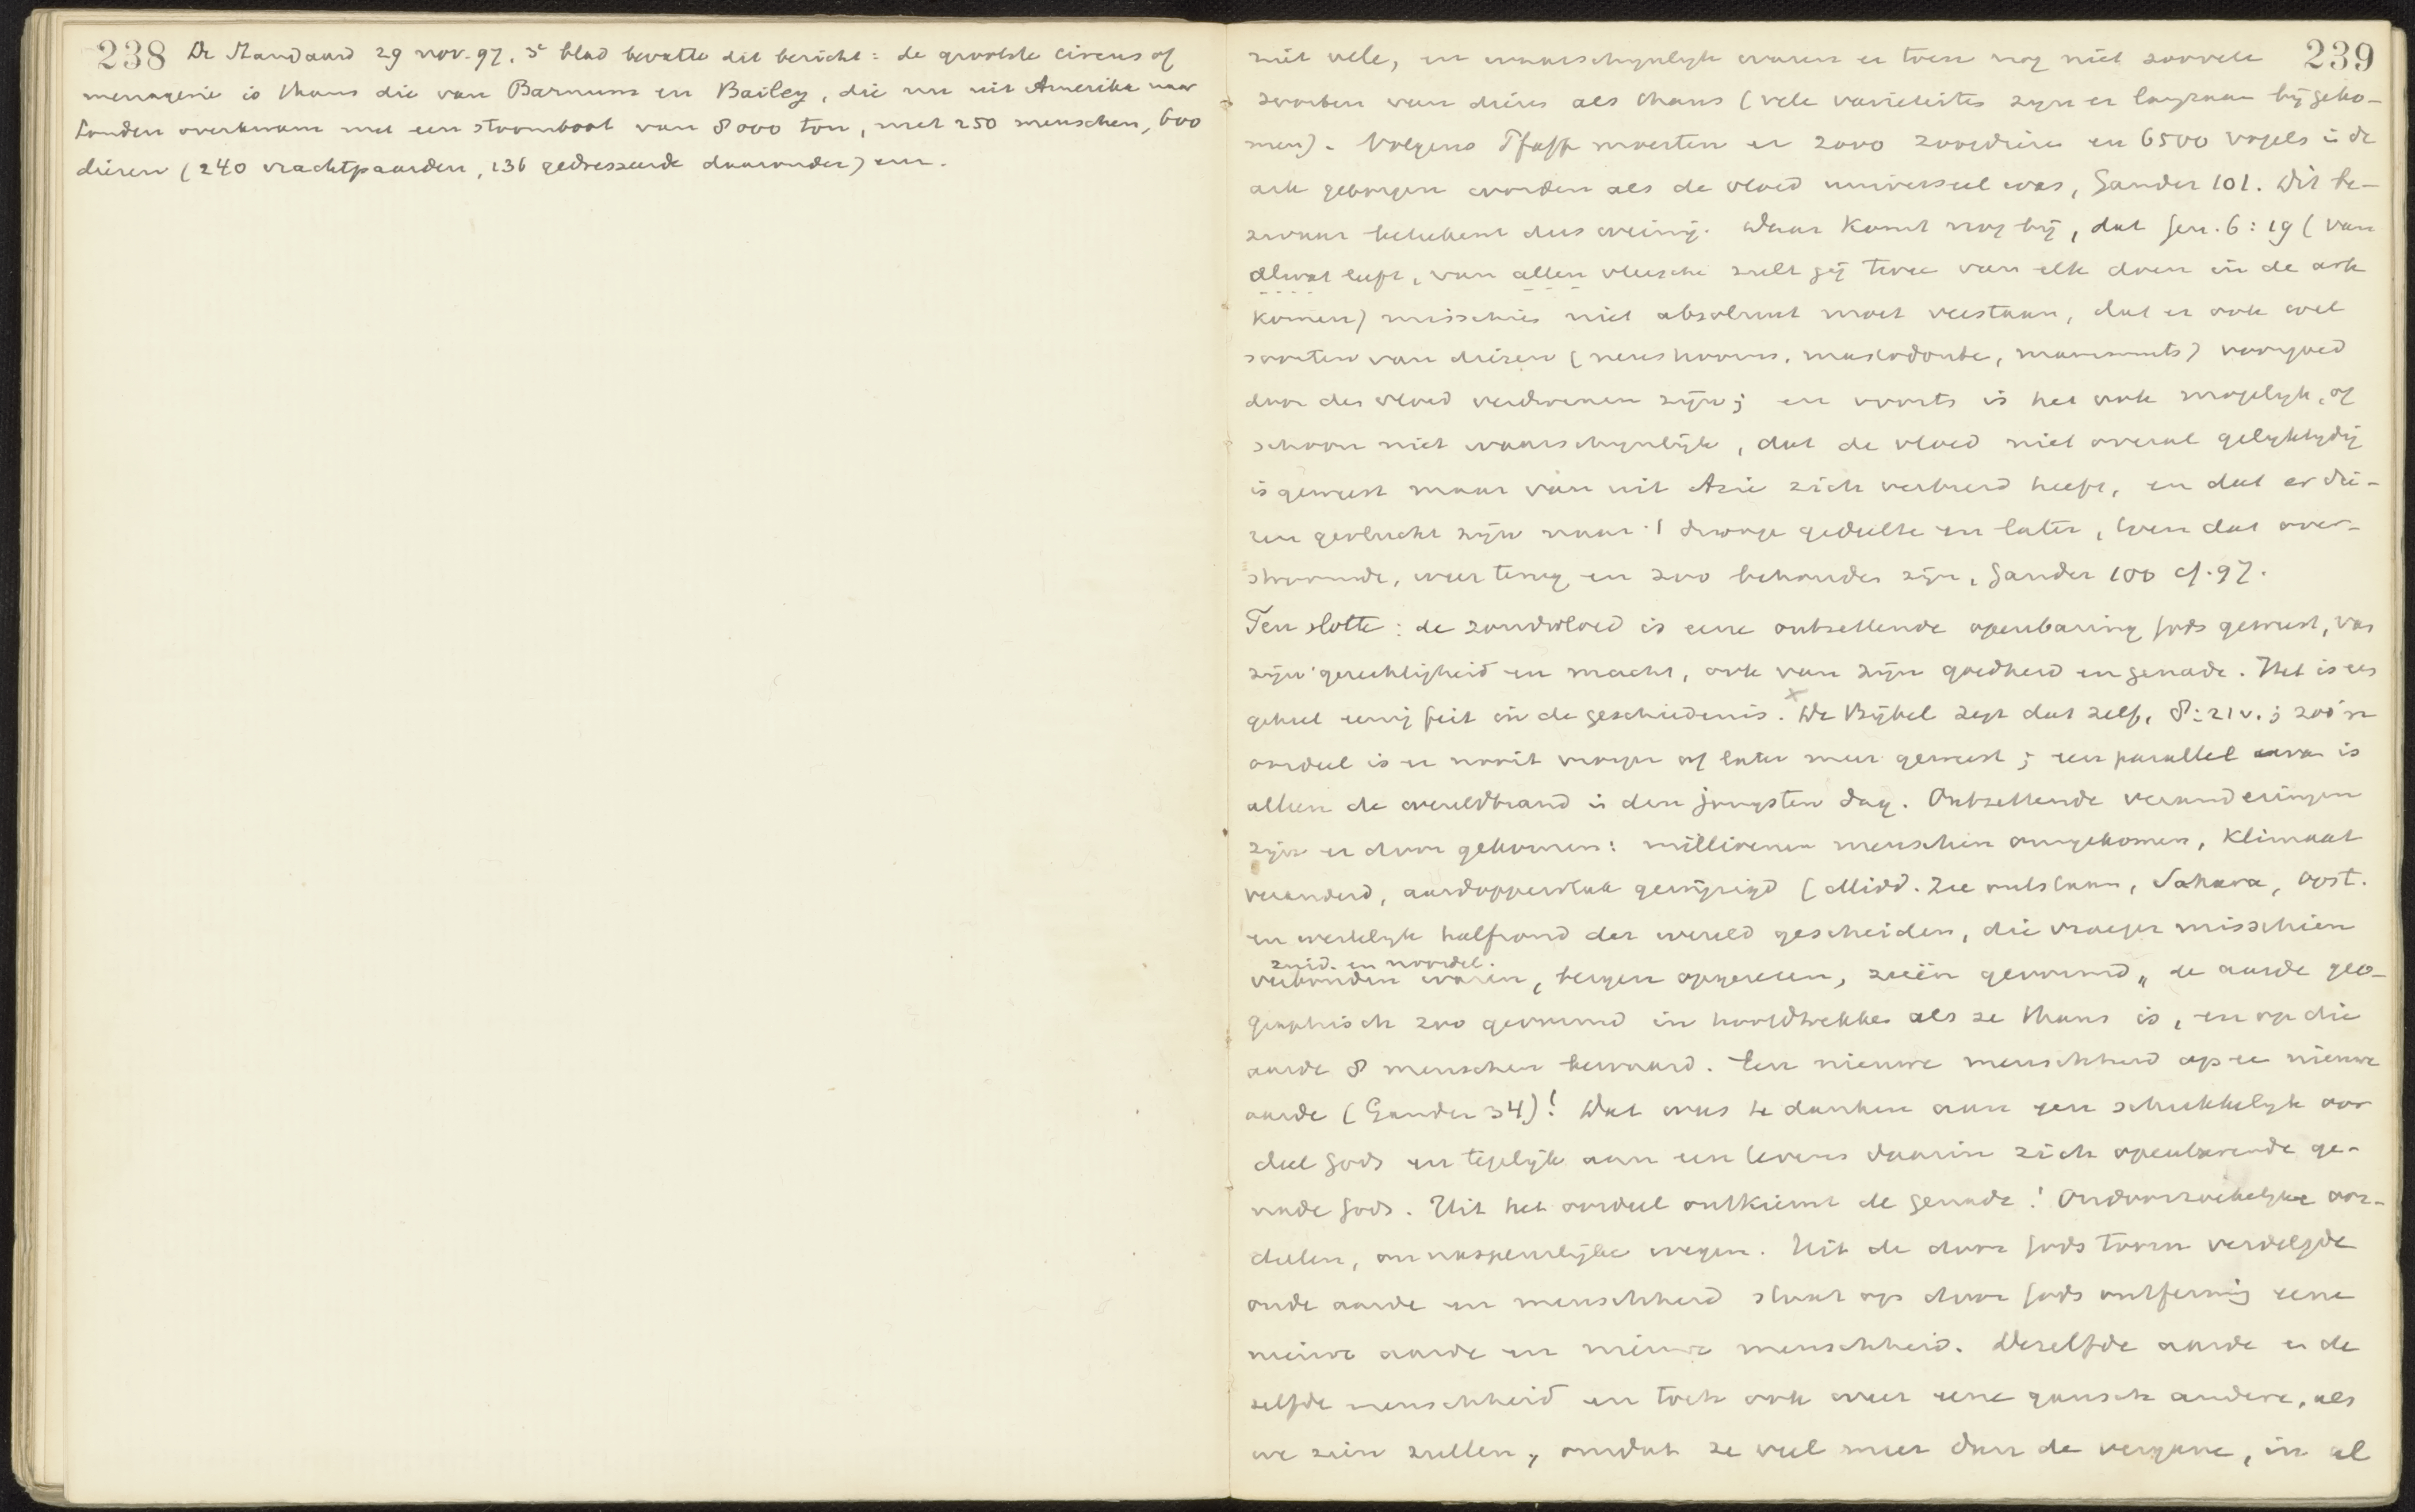 238 De Standaard 29 nov. 97. 3e blad bevatte dit bericht: de grootste circus of
menagerie is thans die van Barnum en Bailey, die nu uit Amerika naar
Londen overkwam met een stoomboot van 8000 ton, met 250 menschen, 600
dieren (240 vrachtpaarden, 136 gedresseerde daaronder) enz.
niet vele, en waarschynlyk waren er toen nog niet zoovele 239
soorten van dieren als thans (vele varieteites zyn er langzaam bygeko-
men). Volgens Pfaff moesten er 2000 zoogdieren en 6500 vogels in de
ark geborgen worden als de vloed universeel was, Gander 101. Dit be-
zwaar beteekent dus weinig. Daar komt nog bij, dat Gen. 6:19 (van
alwat leeft, van allen vleesche zult gij twee van elk doen in de ark
komen) misschien niet absoluut moet verstaan, dat er ook wel
soorten van dieren (neushoorns, mastodonte, mammuts) voorgoed
door den vloed verdwenen zijn; en voorts is het ook mogelyk, of
schoon niet waarschynlijk, dat de vloed niet overal gelyktydig
is geweest maar van uit Azie zich verbreid heeft, en dat er die-
ren gevlucht zijn naar 't drooge gedeelte en later, toen dat over-
stroomde, weer terug en zoo behouden zijn, Gander 100 cf. 97.
Ten slotte: de zondvloed is eene ontzettende openbaring Gods geweest, van
zijn gerechtigheid en macht, ook van zijn goedheid en genade. Het is een
geheel eenig feit in de geschiedenis. x De Bijbel zegt dat zelf, 8:21v.; zoo'n
oordeel is er nooit vroeger of later meer geweest; een parallel is
alleen de wereldbrand in den jongsten dag. Ontzettende veranderingen
zijn er door gekomen: millioenen menschen omgekomen, klimaat
veranderd, aardoppervlak gewijzigd (Midd. Zee ontstaan, Sahara, oost.
en westelyk halfrond der wereld gescheiden, die vroeger misschien
zuid. en noordel.
verbonden waren, bergen opgerezen, zeeën gevormd,, de aarde geo-
graphisch zoo gevormd in hoofdtrekken als ze thans is, en op die
aarde 8 menschen bewaard. Een nieuwe menschheid op ee nieuwe
aarde (Gander 34)! Dat was te danken aan een schrikkelyk oor
deel Gods en tegelijk aan een tevens daarin zich openbarende ge-
nade Gods. Uit het oordeel ontkiemt de genade! Ondoorzoekelyke oor-
delen, onnaspeurlijke wegen. Uit de door Gods toorn verdelgde
oude aarde en menschheid staat op door Gods ontferming eene
nieuwe aarde en nieuwe menschheid. Dezelfde aarde en de
zelfde menschheid en toch ook weer eene gansch andere, als
we zien zullen, omdat ze veel meer dan de vorige, in al